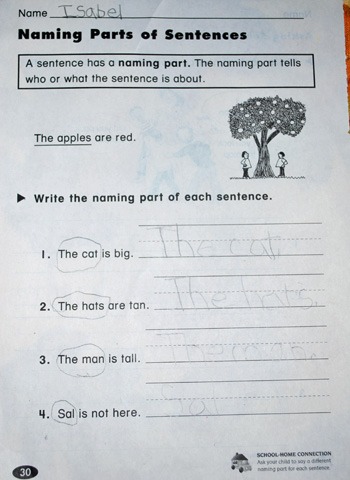 Name Isabel
Naming Parts of Sentences
A sentence has a naming part. The naming part tells
who or what the sentence is about.
The apples are red.
▶ Write the naming part of each sentence.
1. The cat is big. The cat.
2. The hats are tan. The hats.
3. The man is tall. The man.
4. Sal is not here.
SCHOOL-HOME CONNECTION
Ask your child to say a different
naming part for each sentence.
30